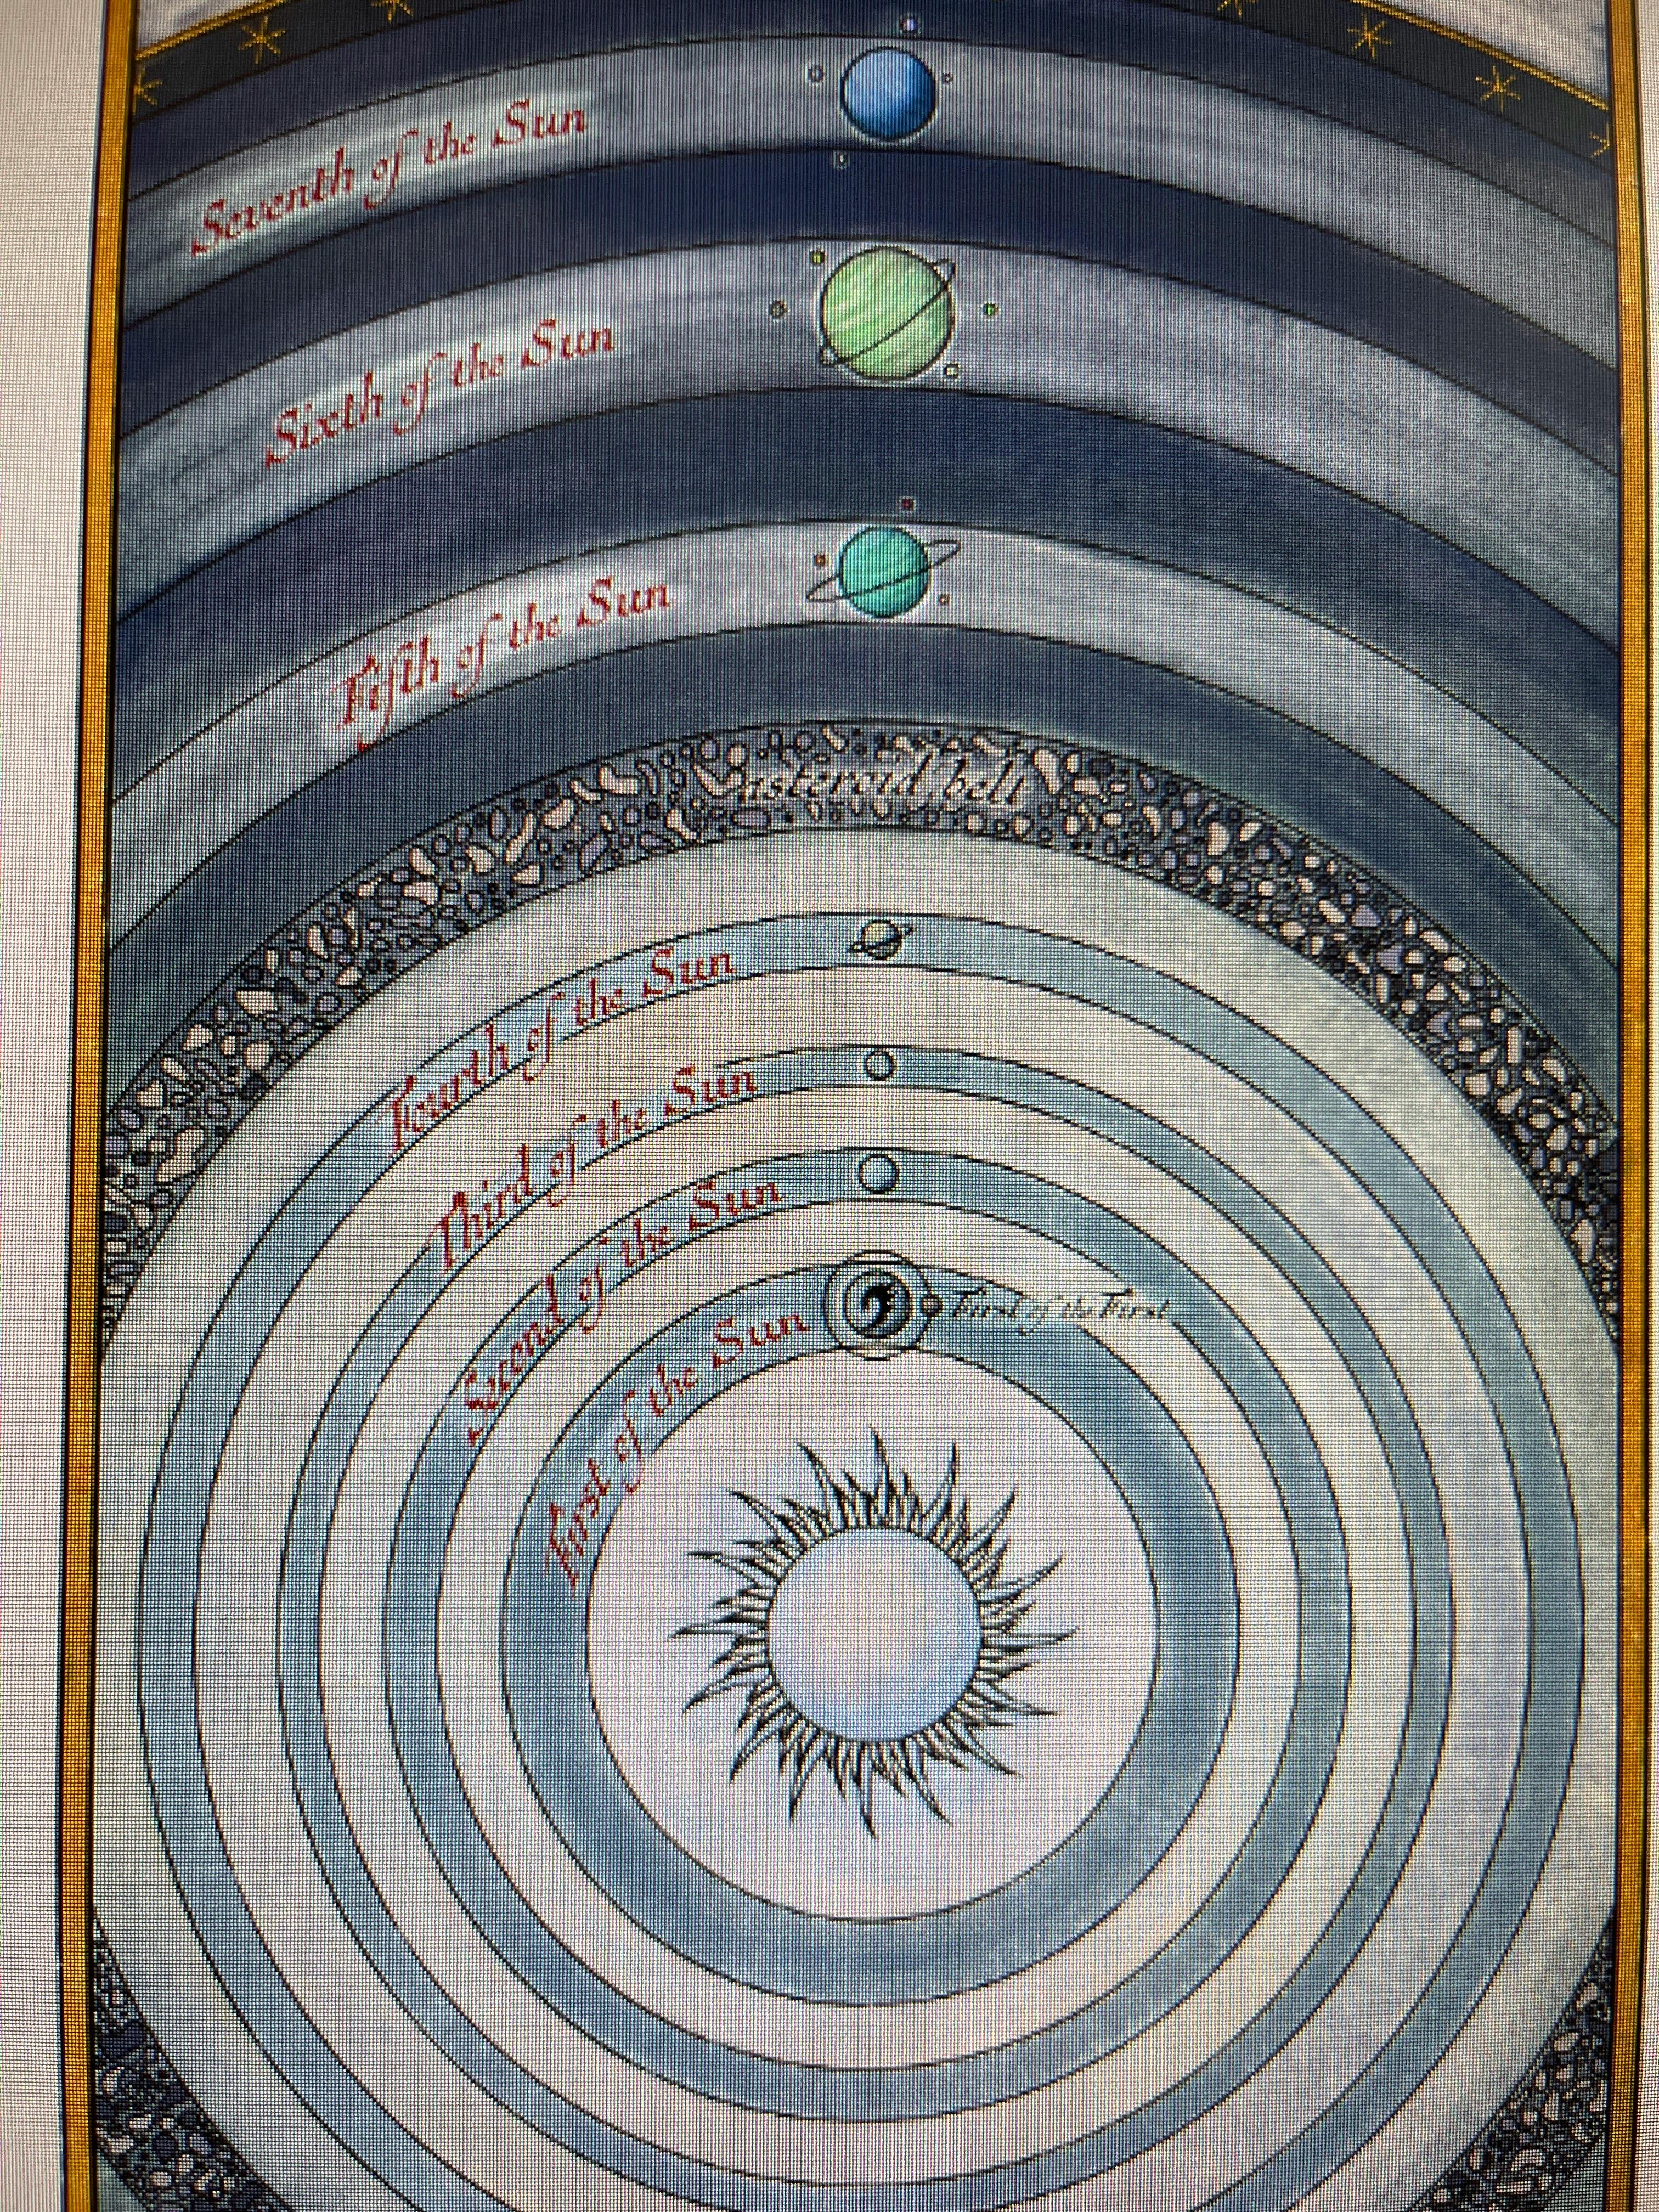 Seventh of the Sun
Sixth of the Sun
Fifth of the Sun
asteroid belt
Fourth of the Sun
Third of the Sun
Second of the Sun
First of the Sun
First of the First